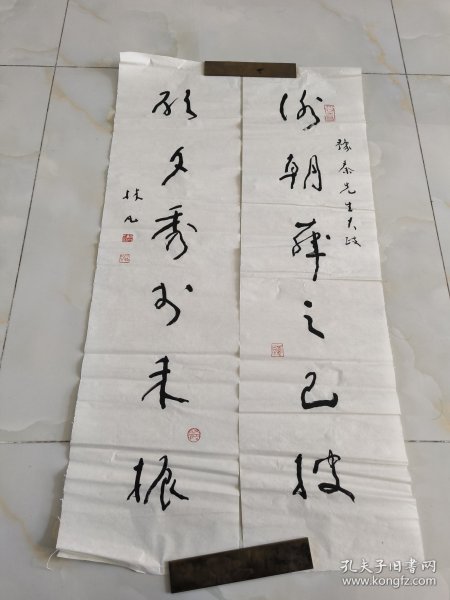 泰先生大政
谢朝華之已披
啟夕秀於未振
林凡
孔夫子旧书网
www.kongfz.com